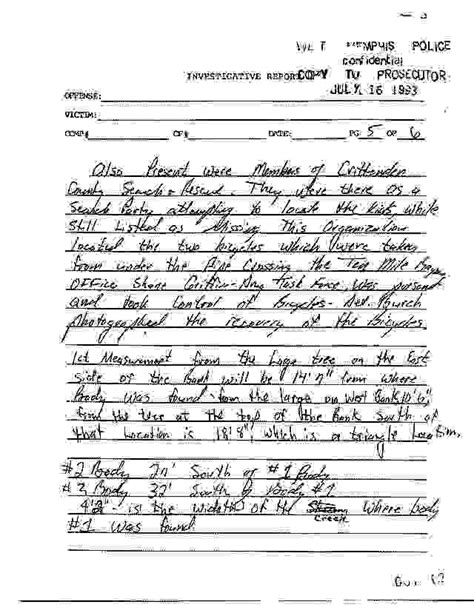 WEST MEMPHIS POLICE
confidential
INVESTIGATIVE REPORT COPY TO PROSECUTOR
JULY 16 1993
OFFENSE:
VICTIM:
COMP# CF# DATE: PG 5 OF 6
Also Present were Members of Crittenden
County Search & Rescue. They were there as a
Search Party attempting to locate the kids while
Still Listed as Missing This Organization
located the two bicycles which were taken
from under the Pipe Crossing the Ten Mile Bayou
Officer Shane Griffin - Drug Task Force was present
and took control of Bicycles - Det. Church
photographed the recovery of the Bicycles.
1st Measurement from the Large tree on the East
side of the Bank will be 14' 7" from where
Body was found - from the large on West Bank 10' 6"
from the tree at the top of the Bank South of
that location is 18' 8" which is a triangle Location.
#2 Body 27' South of #1 Body
#3 Body 32' South of Body #2
4' 2" - is the width of the Where body
Creek
#1 Was found